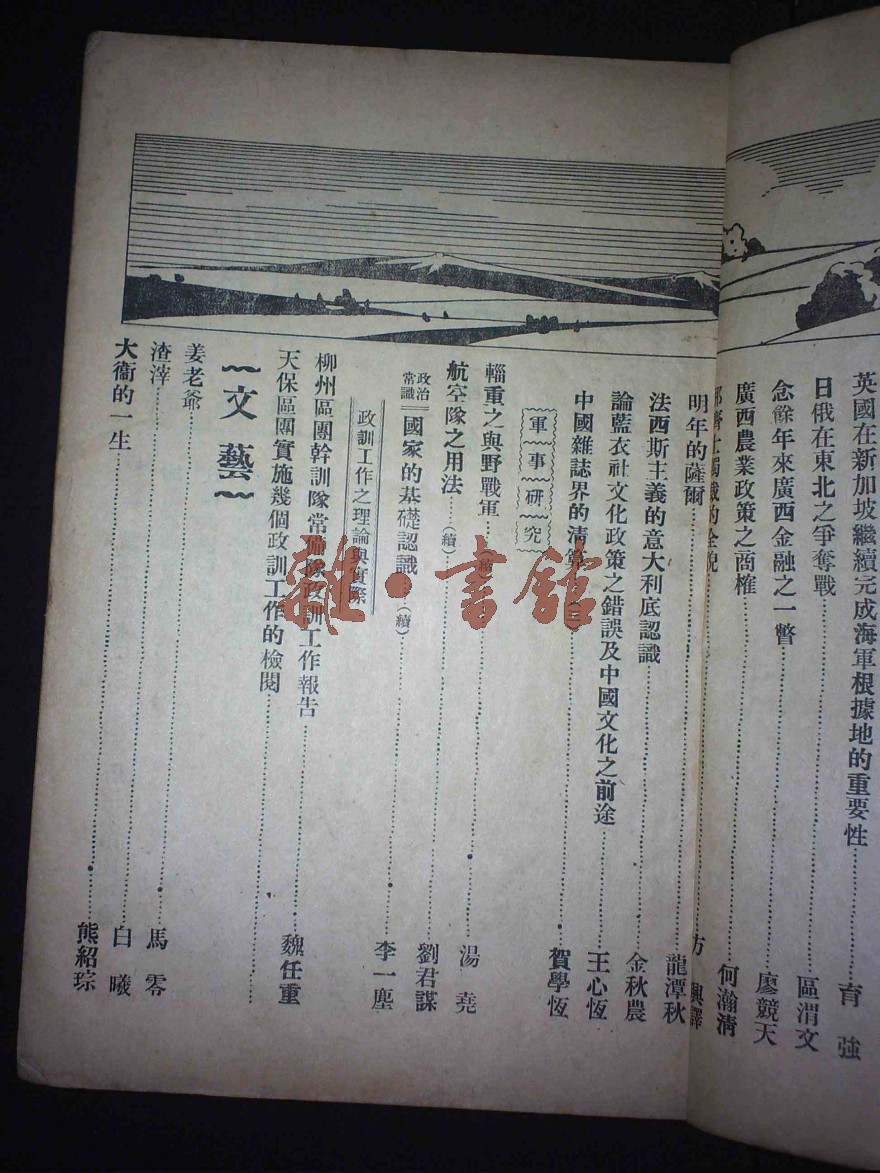 英國在新加坡繼續完成海軍根據地的重要性……育強
日俄在東北之爭奪戰……區渭文
念餘年來廣西金融之一瞥……廖競天
廣西農業政策之商榷……何瀚清
獨裁的全貌……方興譯
明年的薩爾……龍潭秋
法西斯主義的意大利底認識……金秋農
論藍衣社文化政策之錯誤及中國文化之前途……王心恆
中國雜誌界的清算……賀學恆
軍事研究
輜重之與野戰軍……(續)……湯堯
航空隊之用法……(續)……劉君謀
政治常識 國家的基礎認識……(續)……李一塵
政訓工作之理論與實際
柳州區團幹訓隊常備隊政訓工作報告……魏任重
天保區團實施幾個政訓工作的檢閱……
文藝
姜老爺……馬零
渣滓……白曦
大衞的一生……熊紹琮
雜·書館